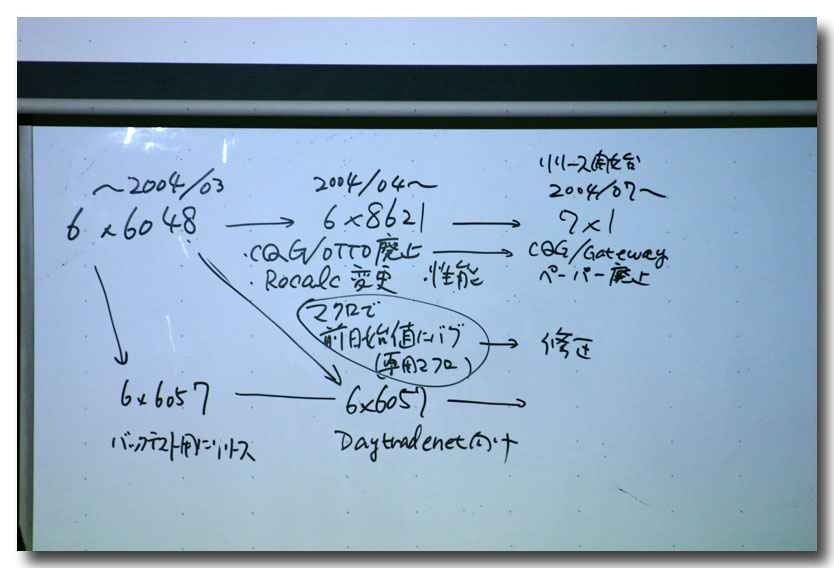 ～2004/03
6x6048
2004/04～
6x8621
・CQG/OTTO廃止
・Rocalc変更 ・性能
リリース開始
2004/07～
7x1
CQG/Gateway
ペーパー廃止
マクロで
前日始値にバグ
(専用マクロ)
修正
6x6057
バックテスト用にリリース
6x6057
Daytradenet向け